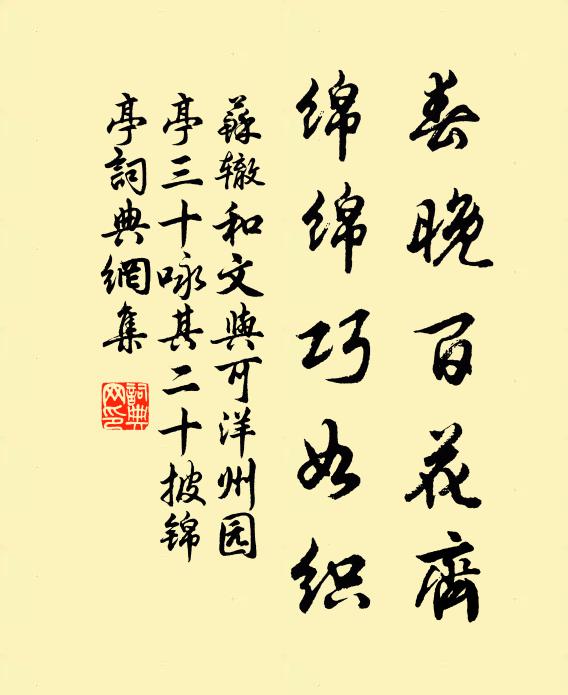 春晚百花齊
绵绵巧如织
蘇辙和文與可洋州园
亭三十咏其二十披锦
亭詞典網集
詞典
网印